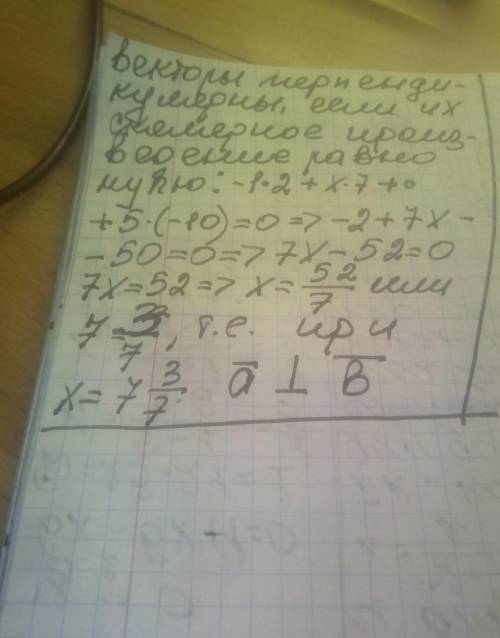 векторы перпенди-
кулярны, если их
скалярное произ-
ведение равно
нулю: -1·2 + x·7 +
+5·(-10)=0 => -2+7x-
-50=0 => 7x-52=0
7x=52 => x= 52/7 или
7 3/7, т.е. при
x= 7 3/7 a̅ ⊥ b̅